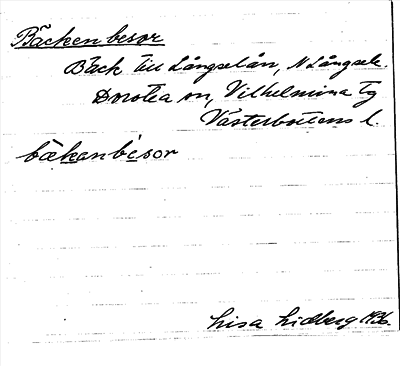 Bäcken besor
Bäck till Långselån, N Långsele.
Dorotea sn, Vilhelmina tg
Västerbottens l.
bäkanbesor
Lisa Lidberg 1936.